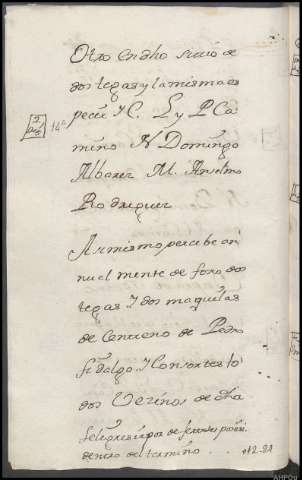 Otro en dho sitio de
dos tegas y la misma es
pecie Y C. L y P Ca
14ª
mino N Domingo
Albarez M. Anselmo
Rodriguez
Asi mismo percibe an
nualmente de foro dos
tegas Y dos maquilas
de Centeno de Pedro
fidalgo Y Consortes to
dos Vezinos de dha
feligresia por
dentro del termino . . .
AHPOu